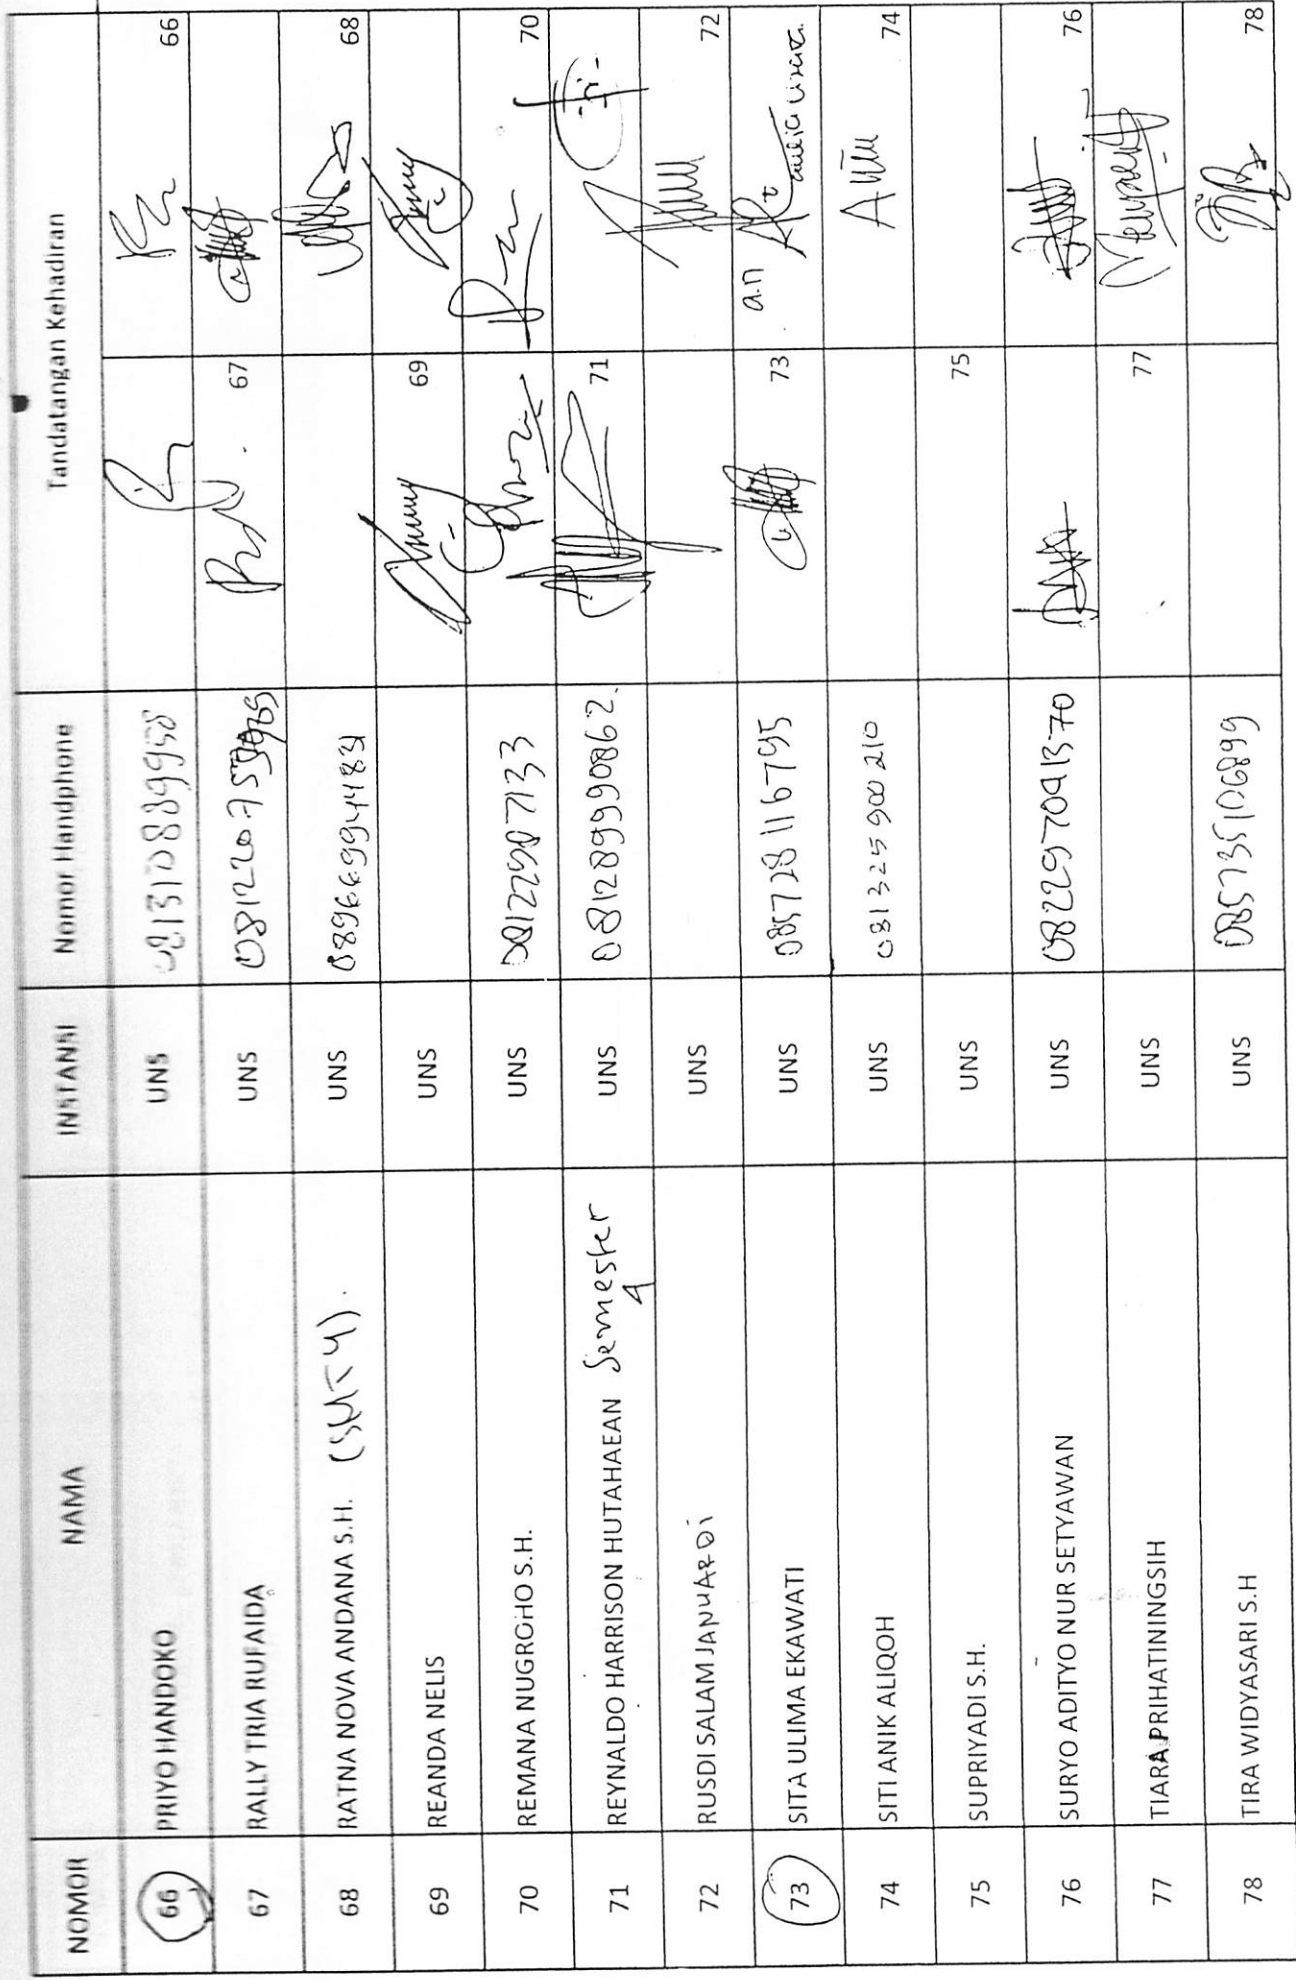 NOMOR NAMA INSTANSI Nomor Handphone Tandatangan Kehadiran
66 PRIYO HANDOKO UNS 66
67 RALLY TRIA RUFAIDA UNS 67
68 RATNA NOVA ANDANA S.H. UNS 089669944831 68
69 REANDA NELIS UNS 69
70 REMANA NUGROHO S.H. UNS 70
71 REYNALDO HARRISON HUTAHAEAN Semester UNS 081289990862. 71
4
72 RUSDI SALAM JANUARDI UNS 72
73 SITA ULIMA EKAWATI UNS 085728116795 a.n 73
74 SITI ANIK ALIQOH UNS 081325900210 74
75 SUPRIYADI S.H. UNS 75
76 SURYO ADITYO NUR SETYAWAN UNS 082297091370 76
77 TIARA PRIHATININGSIH UNS 77
78 TIRA WIDYASARI S.H UNS 085735106899 78